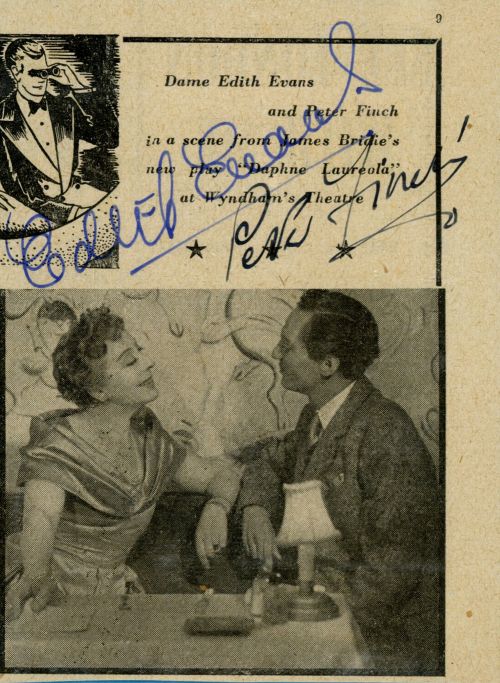 9
Dame Edith Evans
and Peter Finch
in a scene from James Bridie's
new play "Daphne Laureola"
at Wyndham's Theatre
Edith Evans
Peter Finch